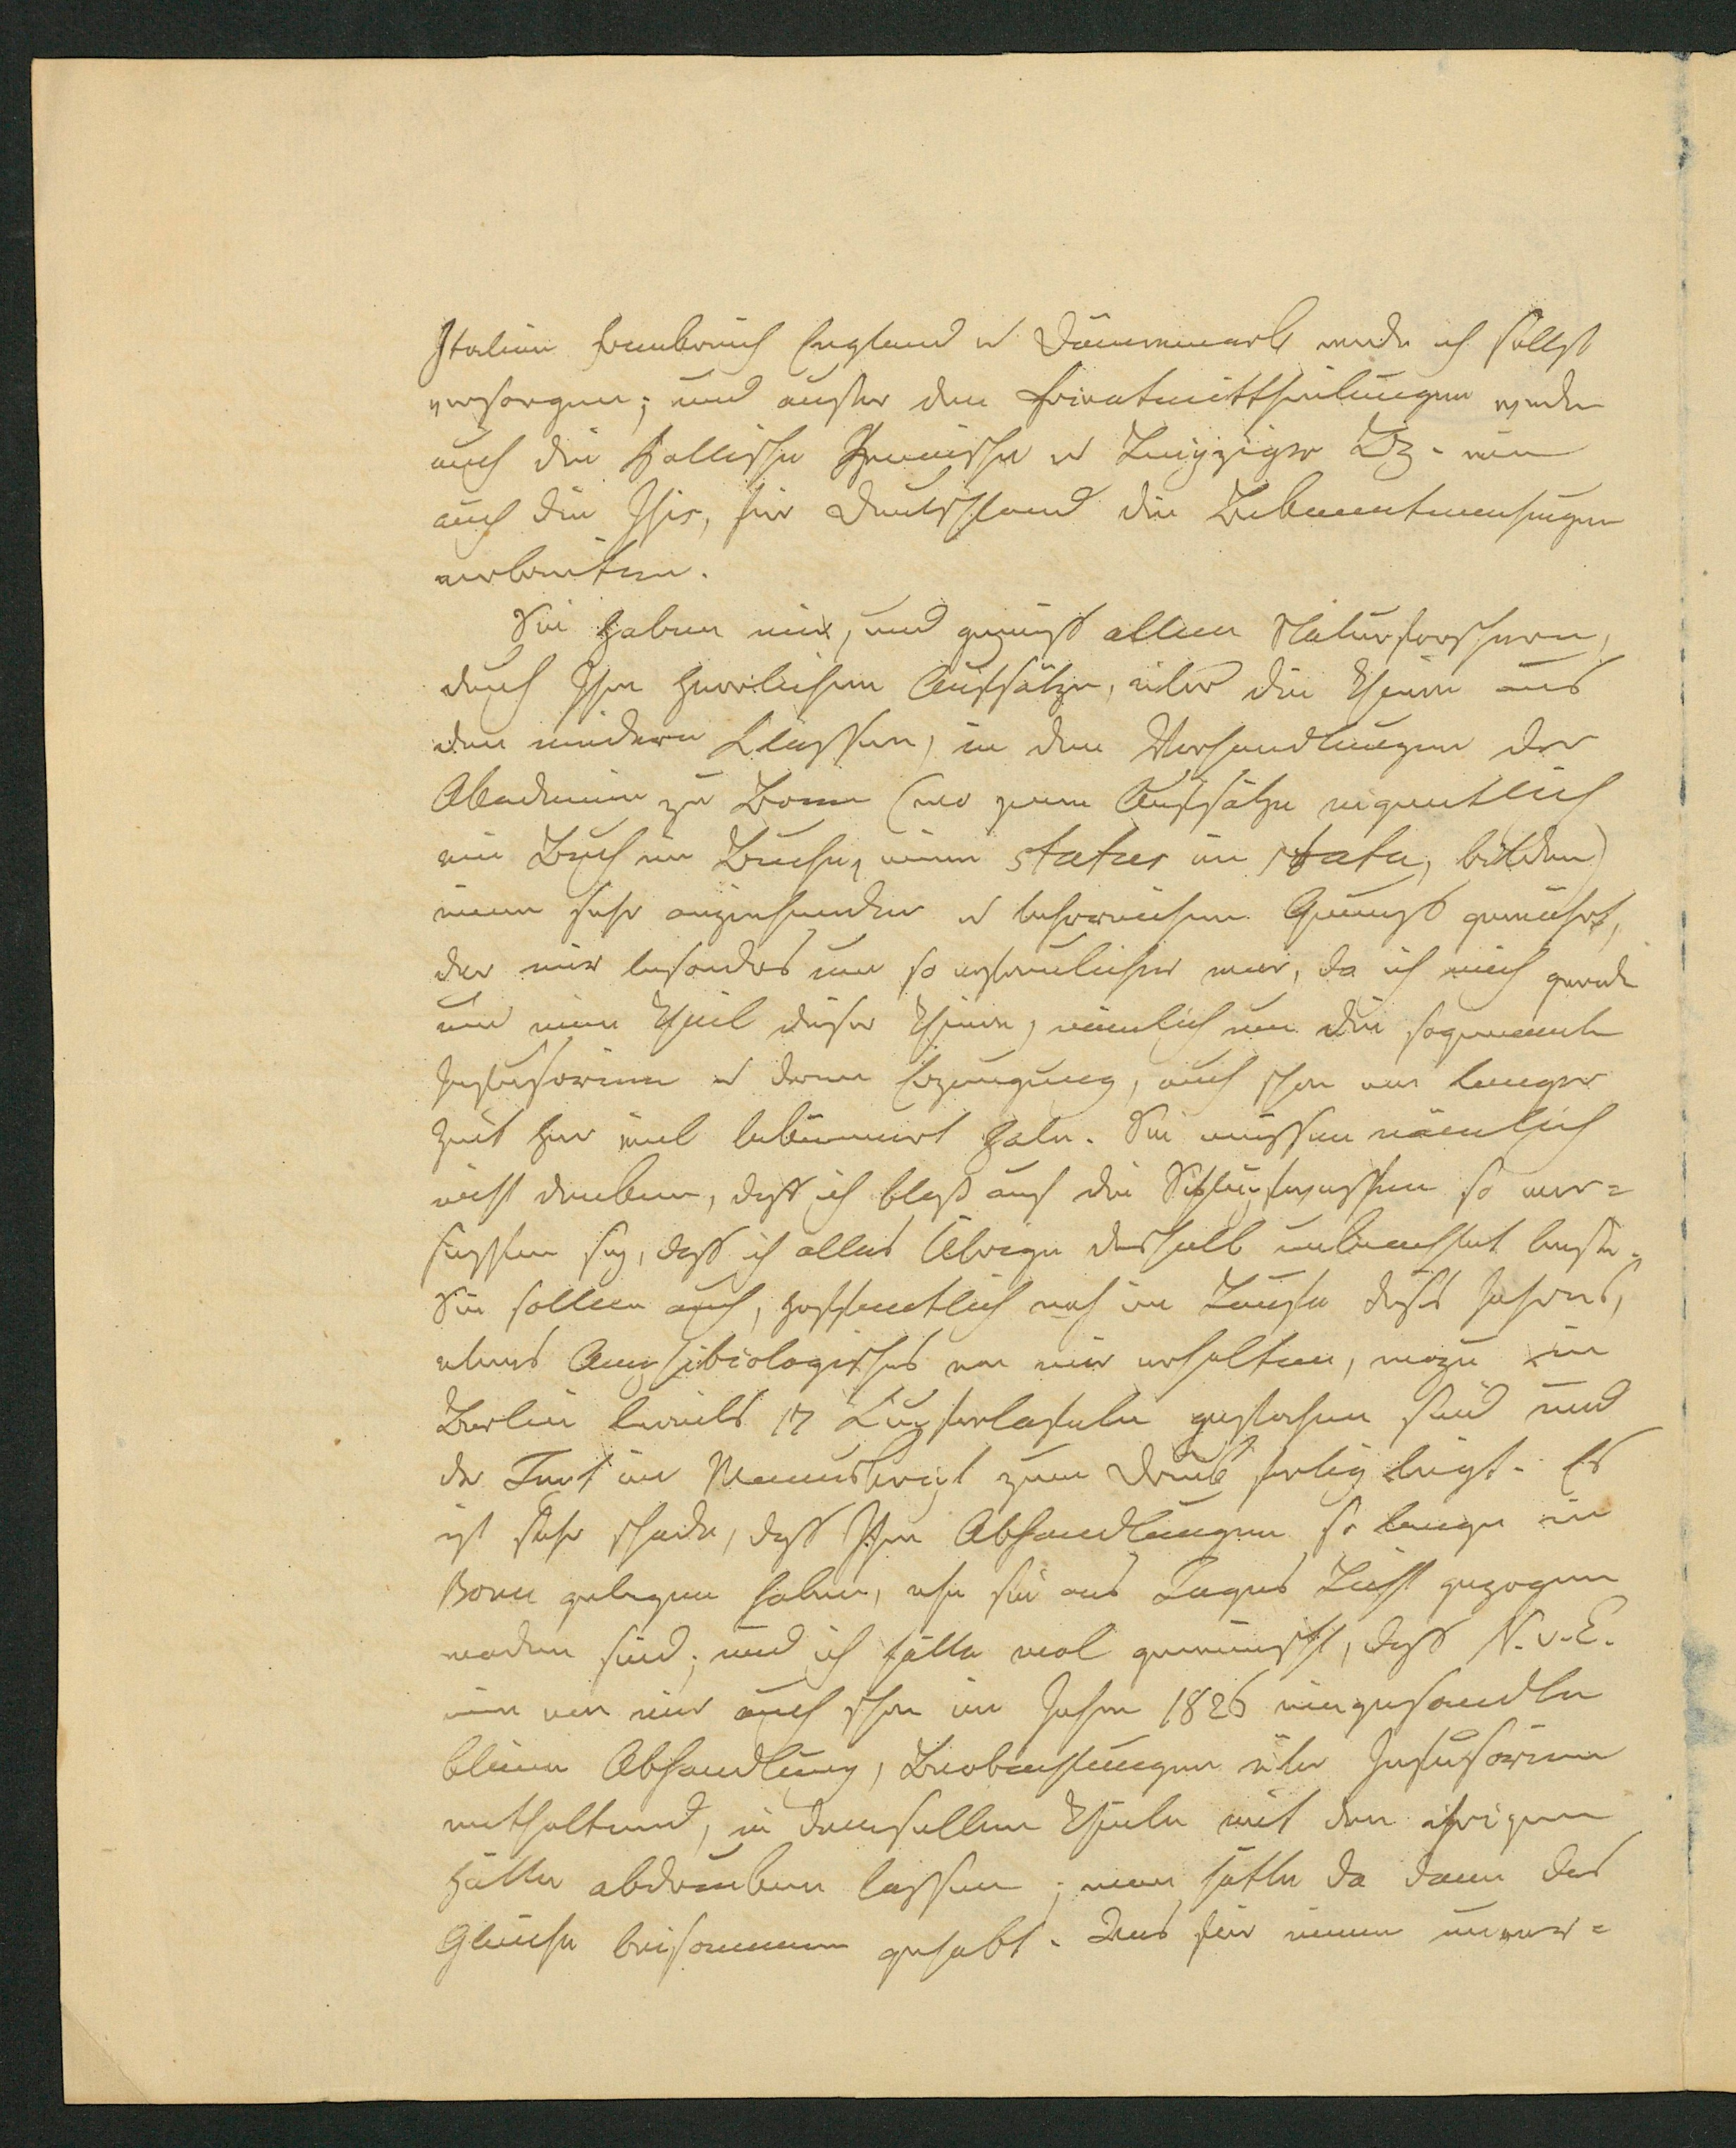 Italien Frankreich England u Dännemark werde ich selbst
versorgen; und außer den Privatmittheilungen werden
auch die Hallische Jenaische u Leipziger Lz. wie
auch die Isis, für Deutschland die Bekanntmachungen
verbreiten.
Sie haben mir, und gewiß allen Naturforschern,
durch Ihre herrlichen Aufsätze, über die Thiere aus
den niedern Klassen, in den Verhandlungen der
Akademie zu Bonn (wo jene Aufsätze eigentlich
ein Buch im Buche, einen status in statu, bilden)
einen sehr anziehenden u lehrreichen Genuß gewährt,
der mir besonders um so erfreulicher war, da ich mich gerade
um einen Theil dieser Thiere, nämlich um die sogenannten
Infusorien u deren Erzeugung, auch schon von langer
Zeit her viel bekümmert habe. Sie müssen nämlich
nicht denken, daß ich bloß auf die Schlupfwespen so ver=
sessen sey, daß ich alles Übrige deshalb unbeachtet lasse.
Sie sollen auch, hoffentlich noch im Laufe dieses Jahres,
etwas Amphibiologisches von mir erhalten, wozu in
Berlin bereits 17 Kupfertafeln gestochen sind und
der Text im Manuskript zum Druck fertig liegt. Es
ist sehr schade, daß Ihre Abhandlungen so lange in
Bonn gelegen haben, ehe sie ans Tages Licht gezogen
worden sind; und ich hätte wol gewünscht, daß N. v. E.
eine von mir auch schon im Jahre 1826 eingesandte
kleine Abhandlung, Beobachtungen über Infusorien
enthaltend, in demselben Theile mit den ihrigen
hätte abdrucken lassen; man hätte da dann das
Gleiche beisammen gehabt. Was für einen unver=